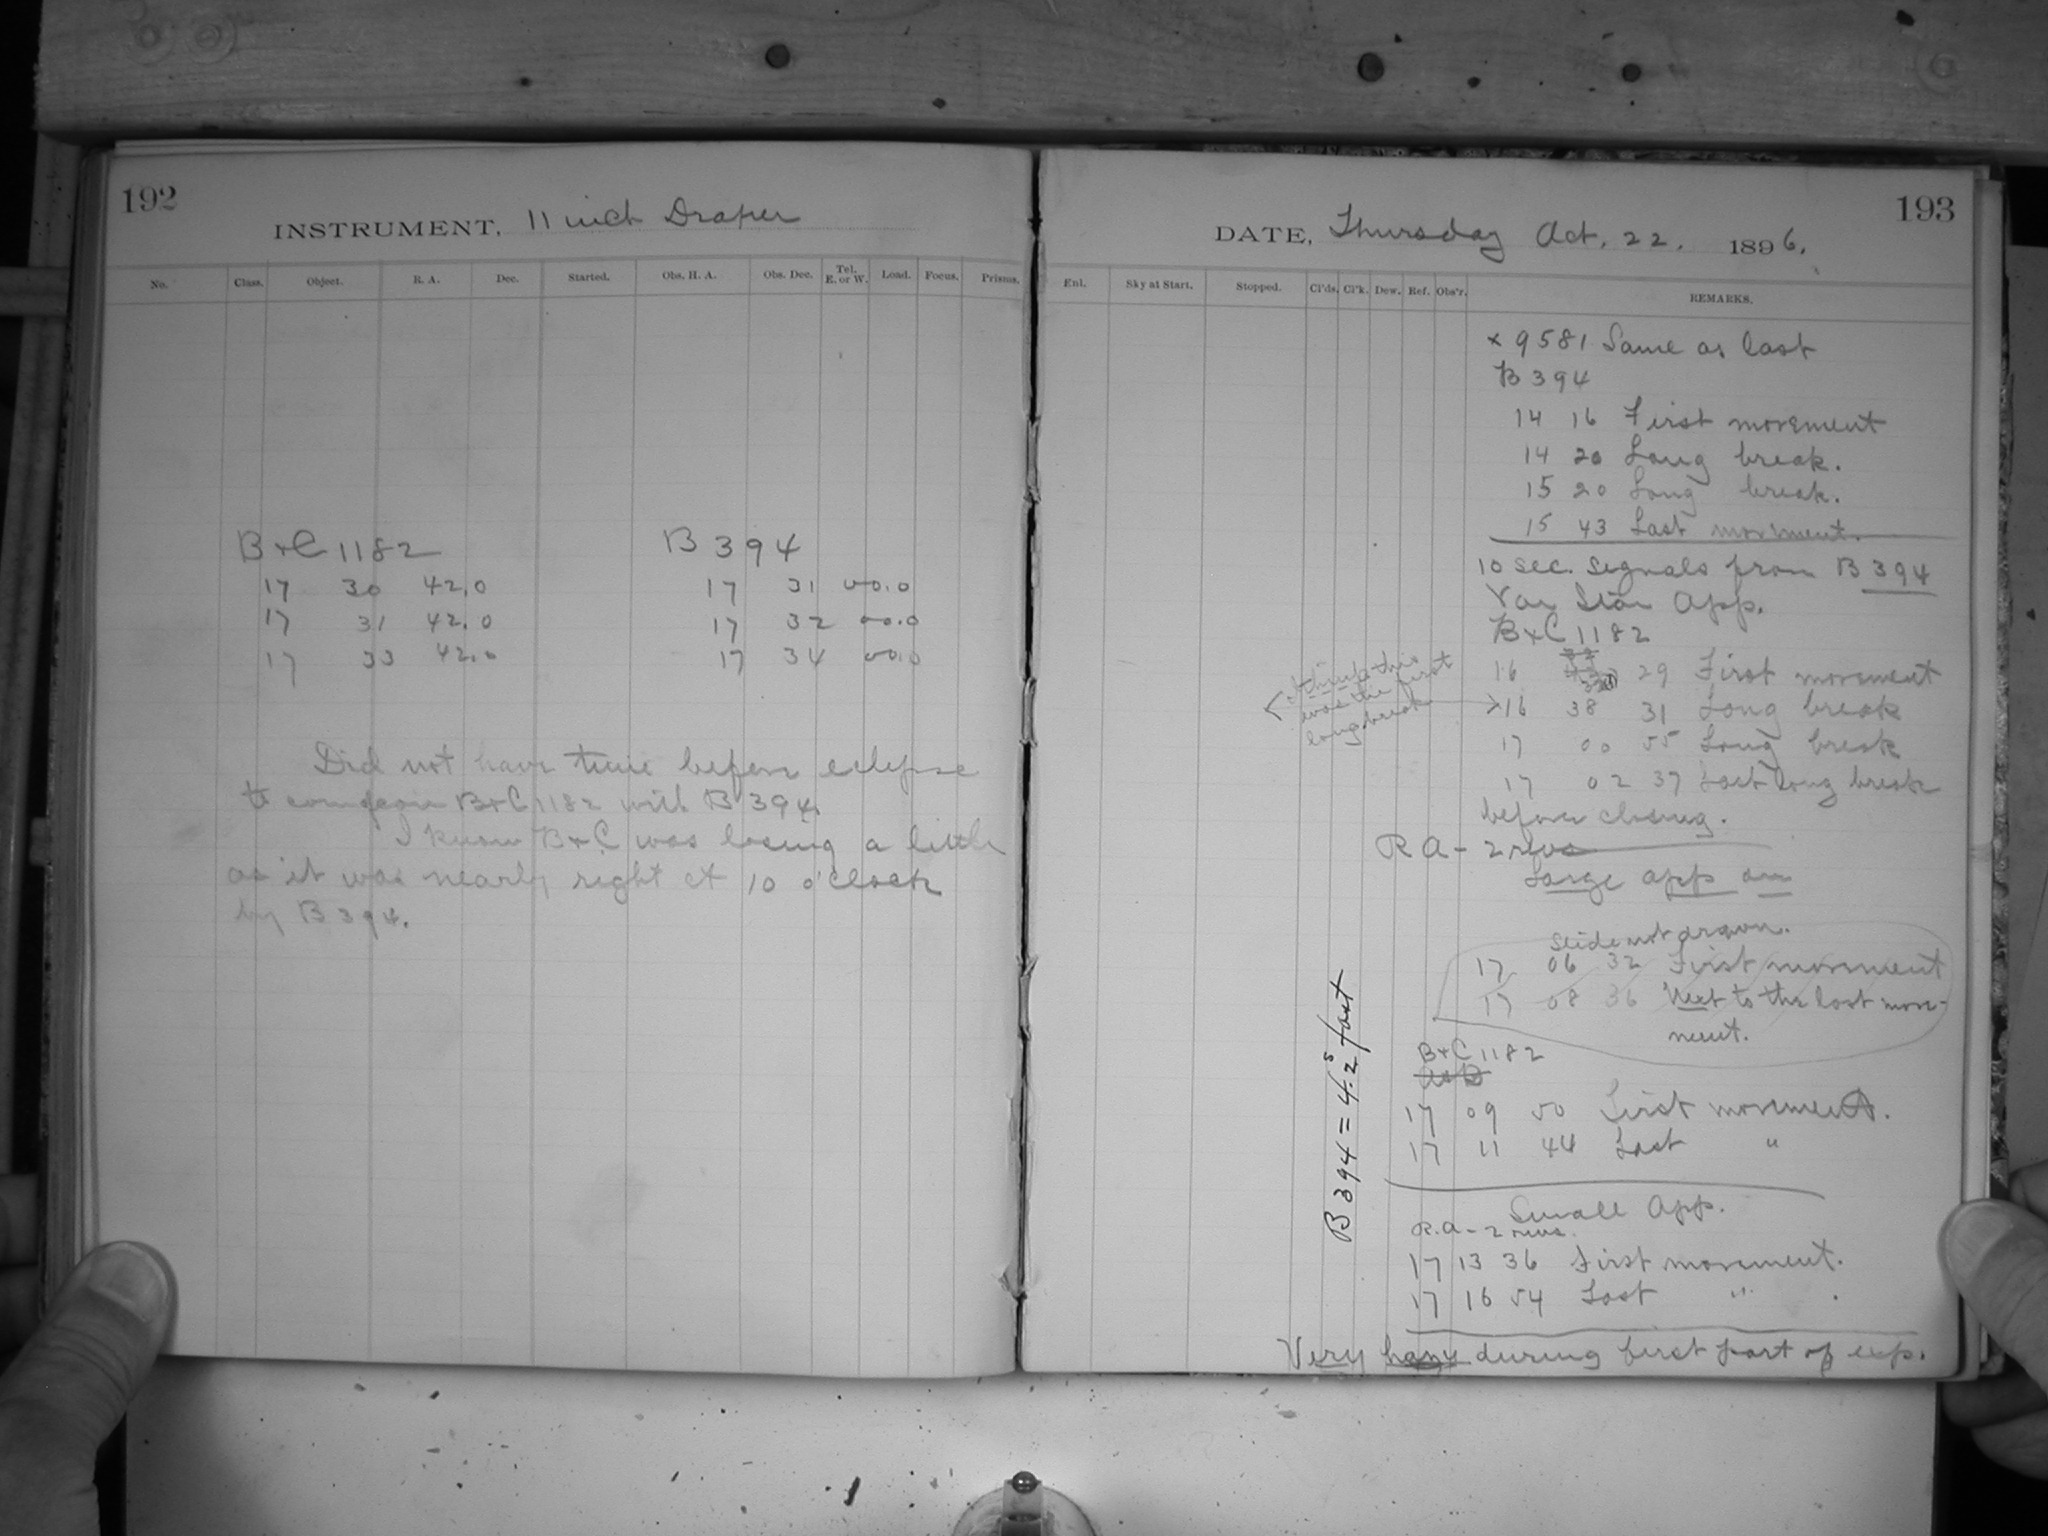 192
INSTRUMENT, 11 inch Draper
No. Class. Object. R. A. Dec. Started. Obs. H. A. Obs. Dec. Tel. E. or W. Load. Focus. Prisms.
B+C 1182 B 394
17 30 42.0 17 31 00.0
17 31 42.0 17 32 00.0
17 33 42.0 17 34 00.0
Did not have time before eclipse
to compare B+C 1182 with B 394.
I know B+C was losing a little
as it was nearly right at 10 o'clock
by B 394.
193
DATE, Thursday Oct. 22. 1896.
Enl. Sky at Start. Stopped. Cl'ds. Cl'k. Dew. Ref. Obs'r. REMARKS.
x 9581 Same as last
B 394
14 16 First movement
14 20 Long break.
15 20 Long break.
15 43 Last movement.
10 sec. signals from B 394
Var Star App.
B+C 1182
16 29 First movement
I think this
was the first
long break
16 38 31 Long break
17 00 55 Long break
17 02 37 Last long break
before closing.
R A - 2 revs
Large app on
Slide not drawn.
17 06 32 First movement
17 08 36 Next to the last move-
ment.
B+C 1182
17 09 50 First movement.
17 11 44 Last "
B 394 = 4.2s fast
Small App.
R.A - 2 revs.
17 13 36 First movement.
17 16 54 Last " .
Very hazy during first part of exp.